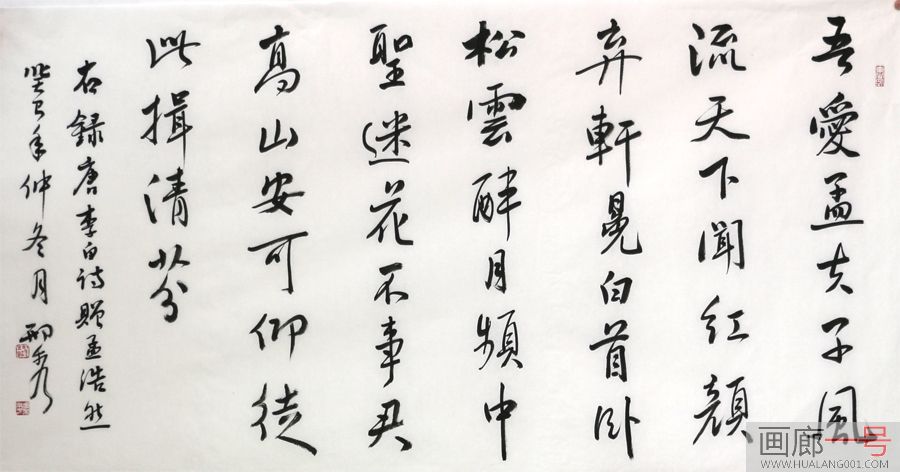 吾愛孟夫子風
流天下聞紅顏
弃軒冕白首卧
松雲醉月頻中
聖迷花不事君
高山安可仰徒
此揖清芬
右錄唐李白詩贈孟浩然
癸巳年仲冬月
画廊一号
WWW.HUALANG001.COM